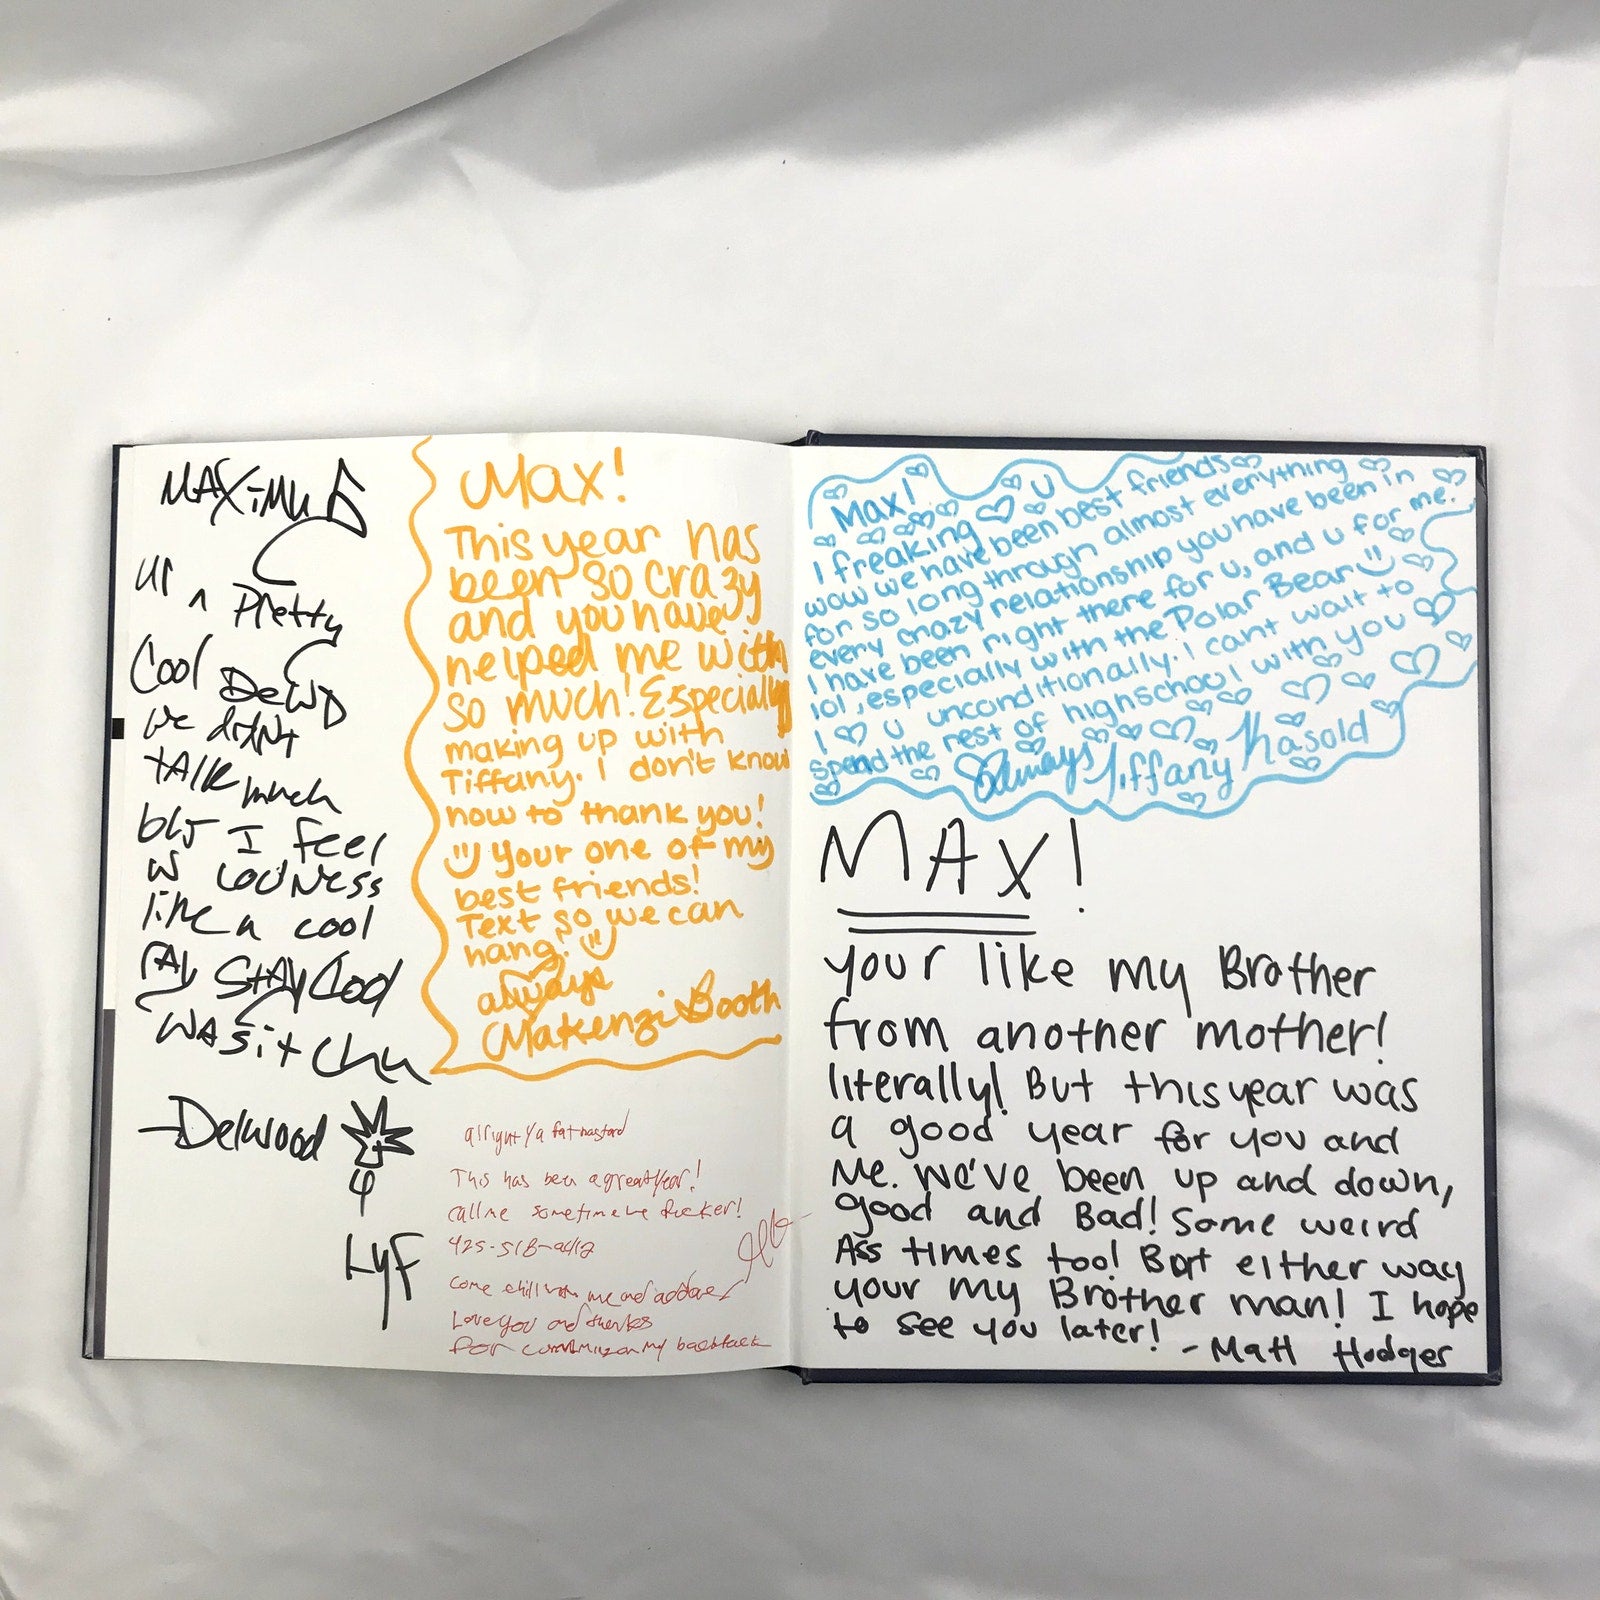 MAXiMuS
ur ^ Pretty
Cool DeWD
we didNt
tAlk much
but I feel
LOUNess
like a cool
STAY Cool
WAS it Chu
-Delwood
LyF
Max!
This year has
been so crazy
and you have
helped me with
so much! Especially
making up with
Tiffany. I don't know
how to thank you!
your one of my
best friends!
Text so we can
hang!
always
Makenzi Booth
alright ya fat bastard
This has been a great year!
call me sometime
Come chill with me and
Love you and thanks
for
Max!
I freaking ♡ U
wow we have been best friends
for so long through almost everything
every crazy relationship you have been in
I have been right there for u, and u for me.
lol, especially with the Polar Bear
I ♡ u unconditionally. I cant wait to
spend the rest of highschool with you
Always Tiffany Kasold
MAX!
your like my Brother
from another mother!
literally! But this year was
a good year for you and
Me. We've been up and down,
good and Bad! Some weird
Ass times too! But either way
your my Brother man! I hope
to see you later!
- Matt Hodges